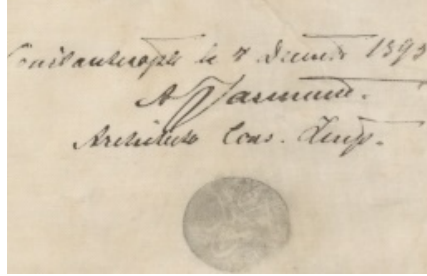 Constantinople le 7 Decembre 1895
A Jasmund.
Architecte Cons. Imp.